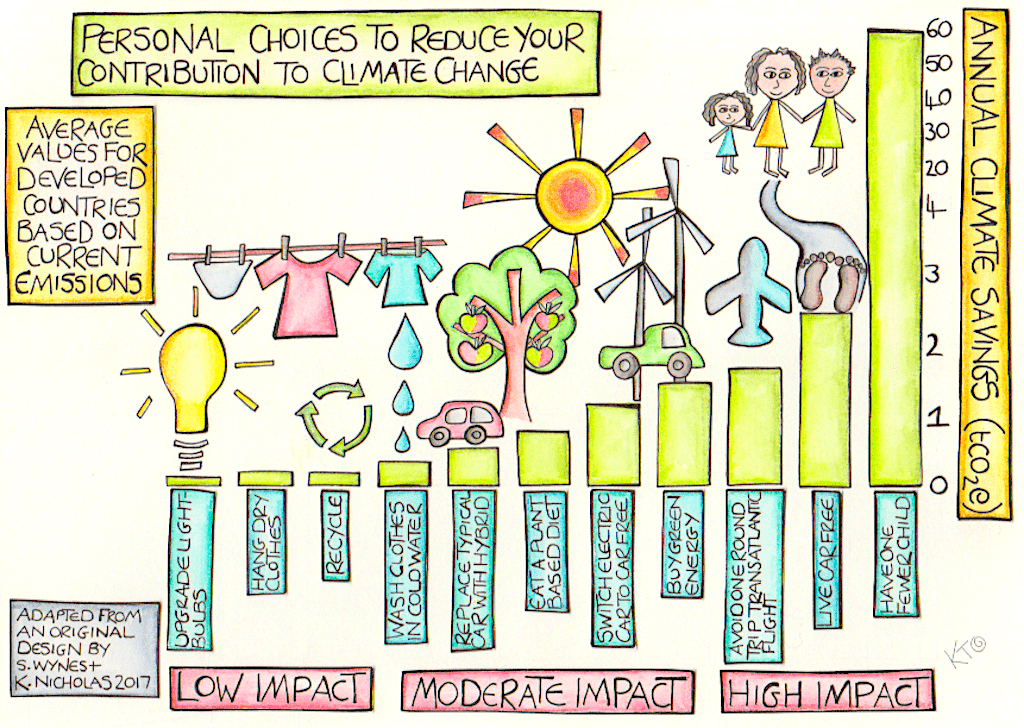 PERSONAL CHOICES TO REDUCE YOUR
CONTRIBUTION TO CLIMATE CHANGE
AVERAGE
VALUES FOR
DEVELOPED
COUNTRIES
BASED ON
CURRENT
EMISSIONS
60
50
40
30
20
4
3
2
1
0
ANNUAL CLIMATE SAVINGS (tCO₂e)
UPGRADE LIGHT-
BULBS
HANG DRY
CLOTHES
RECYCLE
WASH CLOTHES
IN COLD WATER
REPLACE TYPICAL
CAR WITH HYBRID
EAT A PLANT
BASED DIET
SWITCH ELECTRIC
CAR TO CAR FREE
BUY GREEN
ENERGY
AVOID ONE ROUND
TRIP TRANSATLANTIC
FLIGHT
LIVE CAR FREE
HAVE ONE
FEWER CHILD
ADAPTED FROM
AN ORIGINAL
DESIGN BY
S. WYNES +
K. NICHOLAS 2017
LOW IMPACT
MODERATE IMPACT
HIGH IMPACT